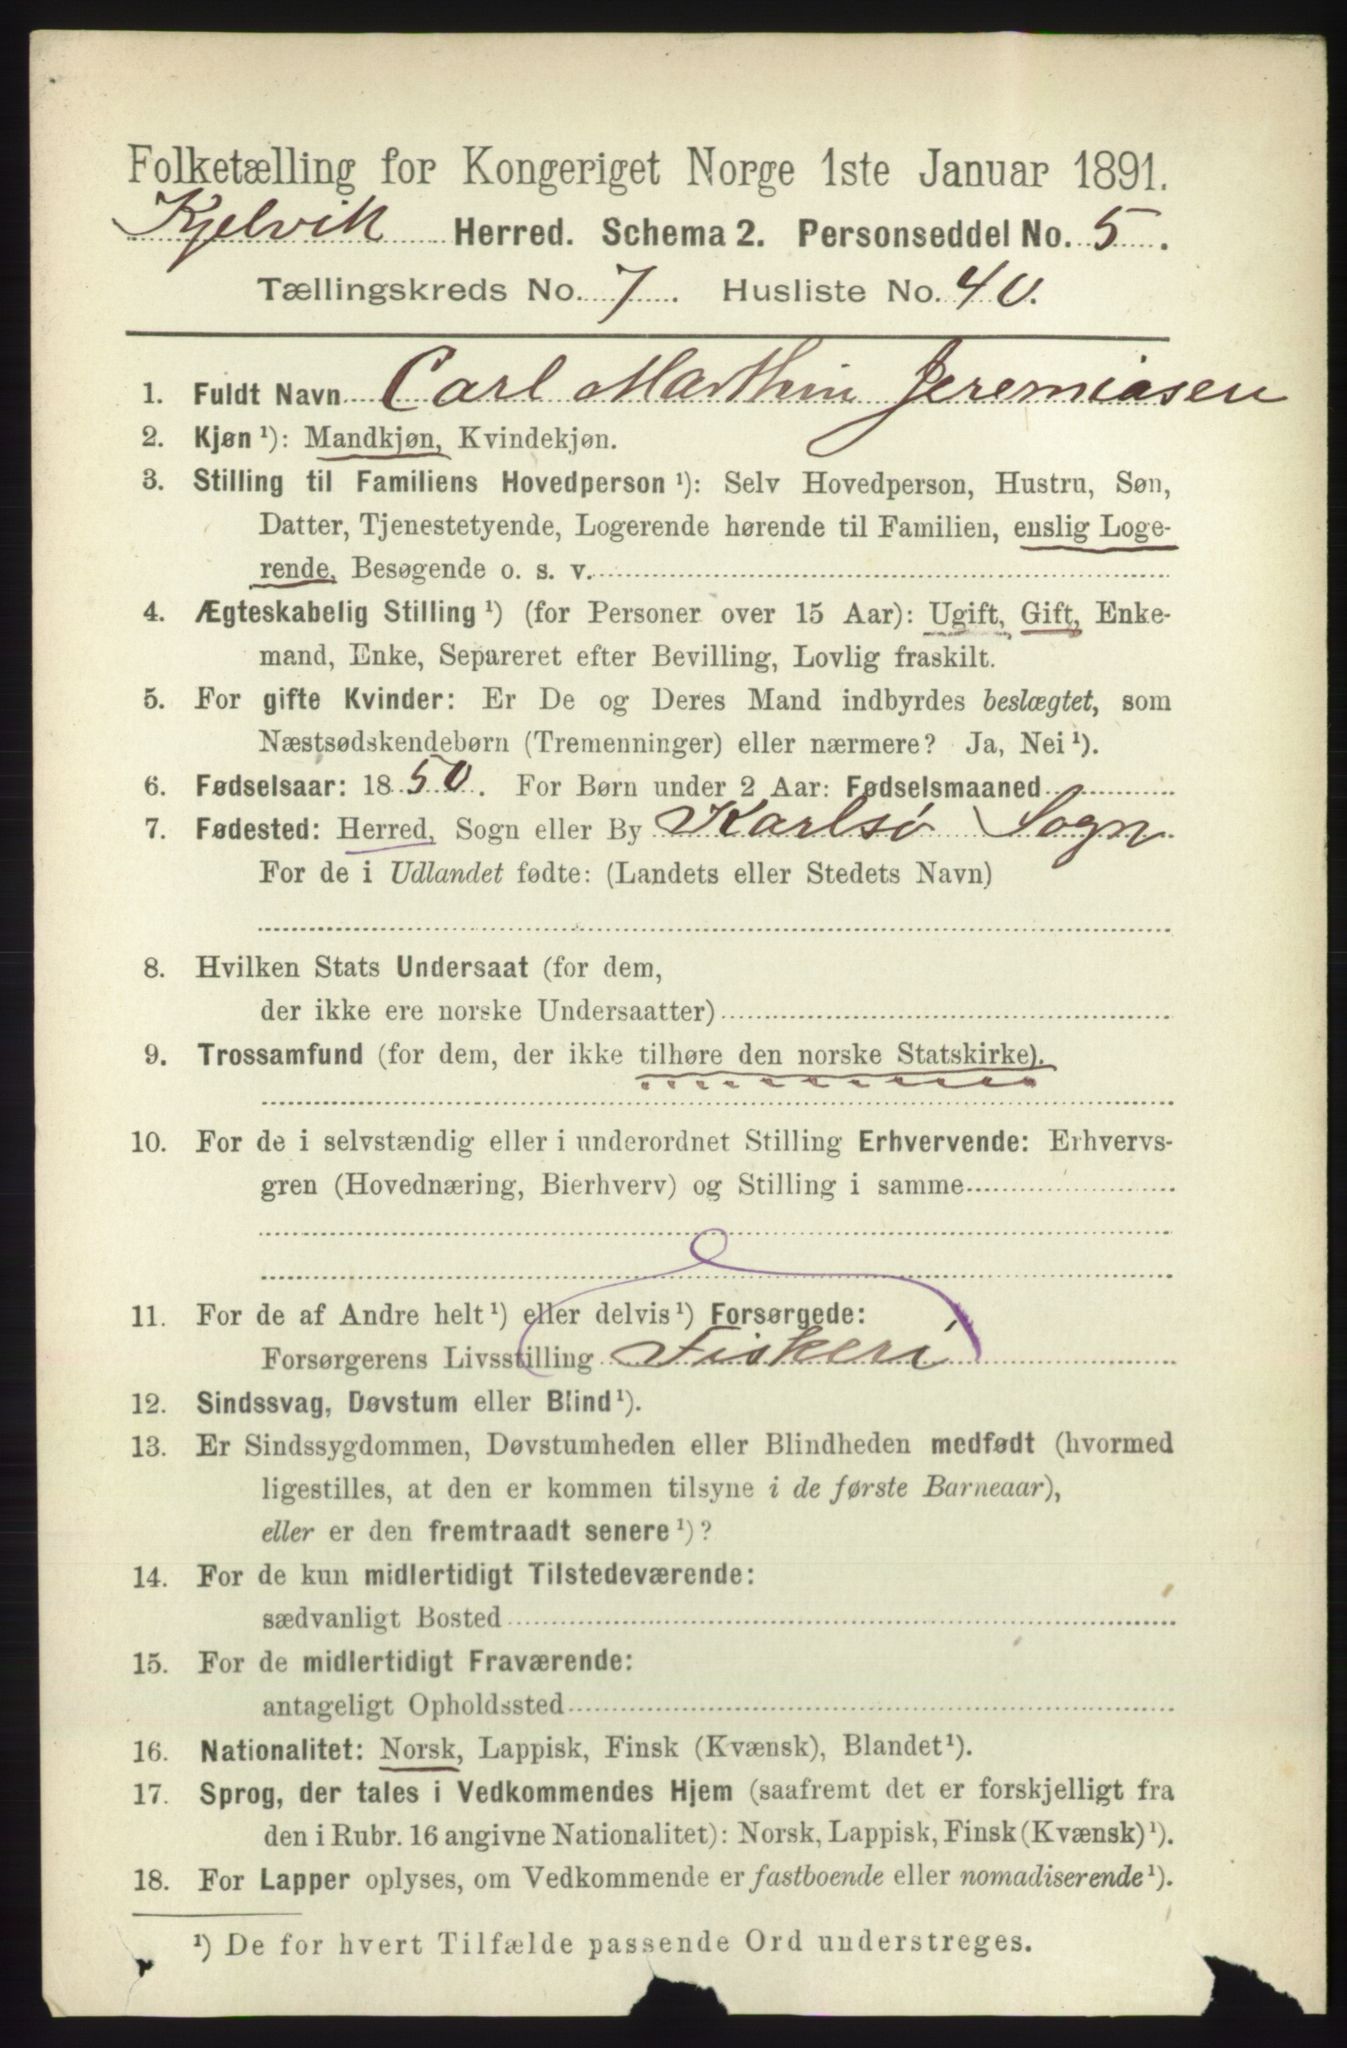 Folketælling for Kongeriget Norge 1ste Januar 1891.
Kjelvik Herred. Schema 2. Personseddel No. 5.
Tællingskreds No. 7. Husliste No. 40.
1. Fuldt Navn Carl Marthin Jeremiasen
2. Kjøn ¹): Mandkjøn, Kvindekjøn.
3. Stilling til Familiens Hovedperson ¹): Selv Hovedperson, Hustru, Søn,
Datter, Tjenestetyende, Logerende hørende til Familien, enslig Loge-
rende, Besøgende o. s. v.
4. Ægteskabelig Stilling ¹) (for Personer over 15 Aar): Ugift, Gift, Enke-
mand, Enke, Separeret efter Bevilling, Lovlig fraskilt.
5. For gifte Kvinder: Er De og Deres Mand indbyrdes beslægtet, som
Næstsødskendebørn (Tremenninger) eller nærmere? Ja, Nei ¹).
6. Fødselsaar: 1850. For Børn under 2 Aar: Fødselsmaaned
7. Fødested: Herred, Sogn eller By Karlsø Sogn
For de i Udlandet fødte: (Landets eller Stedets Navn)
8. Hvilken Stats Undersaat (for dem,
der ikke ere norske Undersaatter)
9. Trossamfund (for dem, der ikke tilhøre den norske Statskirke).
10. For de i selvstændig eller i underordnet Stilling Erhvervende: Erhvervs-
gren (Hovednæring, Bierhverv) og Stilling i samme
11. For de af Andre helt ¹) eller delvis ¹) Forsørgede:
Forsørgerens Livsstilling Fiskeri
12. Sindssvag, Døvstum eller Blind ¹).
13. Er Sindssygdommen, Døvstumheden eller Blindheden medfødt (hvormed
ligestilles, at den er kommen tilsyne i de første Barneaar),
eller er den fremtraadt senere ¹)?
14. For de kun midlertidigt Tilstedeværende:
sædvanligt Bosted
15. For de midlertidigt Fraværende:
antageligt Opholdssted
16. Nationalitet: Norsk, Lappisk, Finsk (Kvænsk), Blandet ¹).
17. Sprog, der tales i Vedkommendes Hjem (saafremt det er forskjelligt fra
den i Rubr. 16 angivne Nationalitet): Norsk, Lappisk, Finsk (Kvænsk) ¹).
18. For Lapper oplyses, om Vedkommende er fastboende eller nomadiserende ¹).
¹) De for hvert Tilfælde passende Ord understreges.